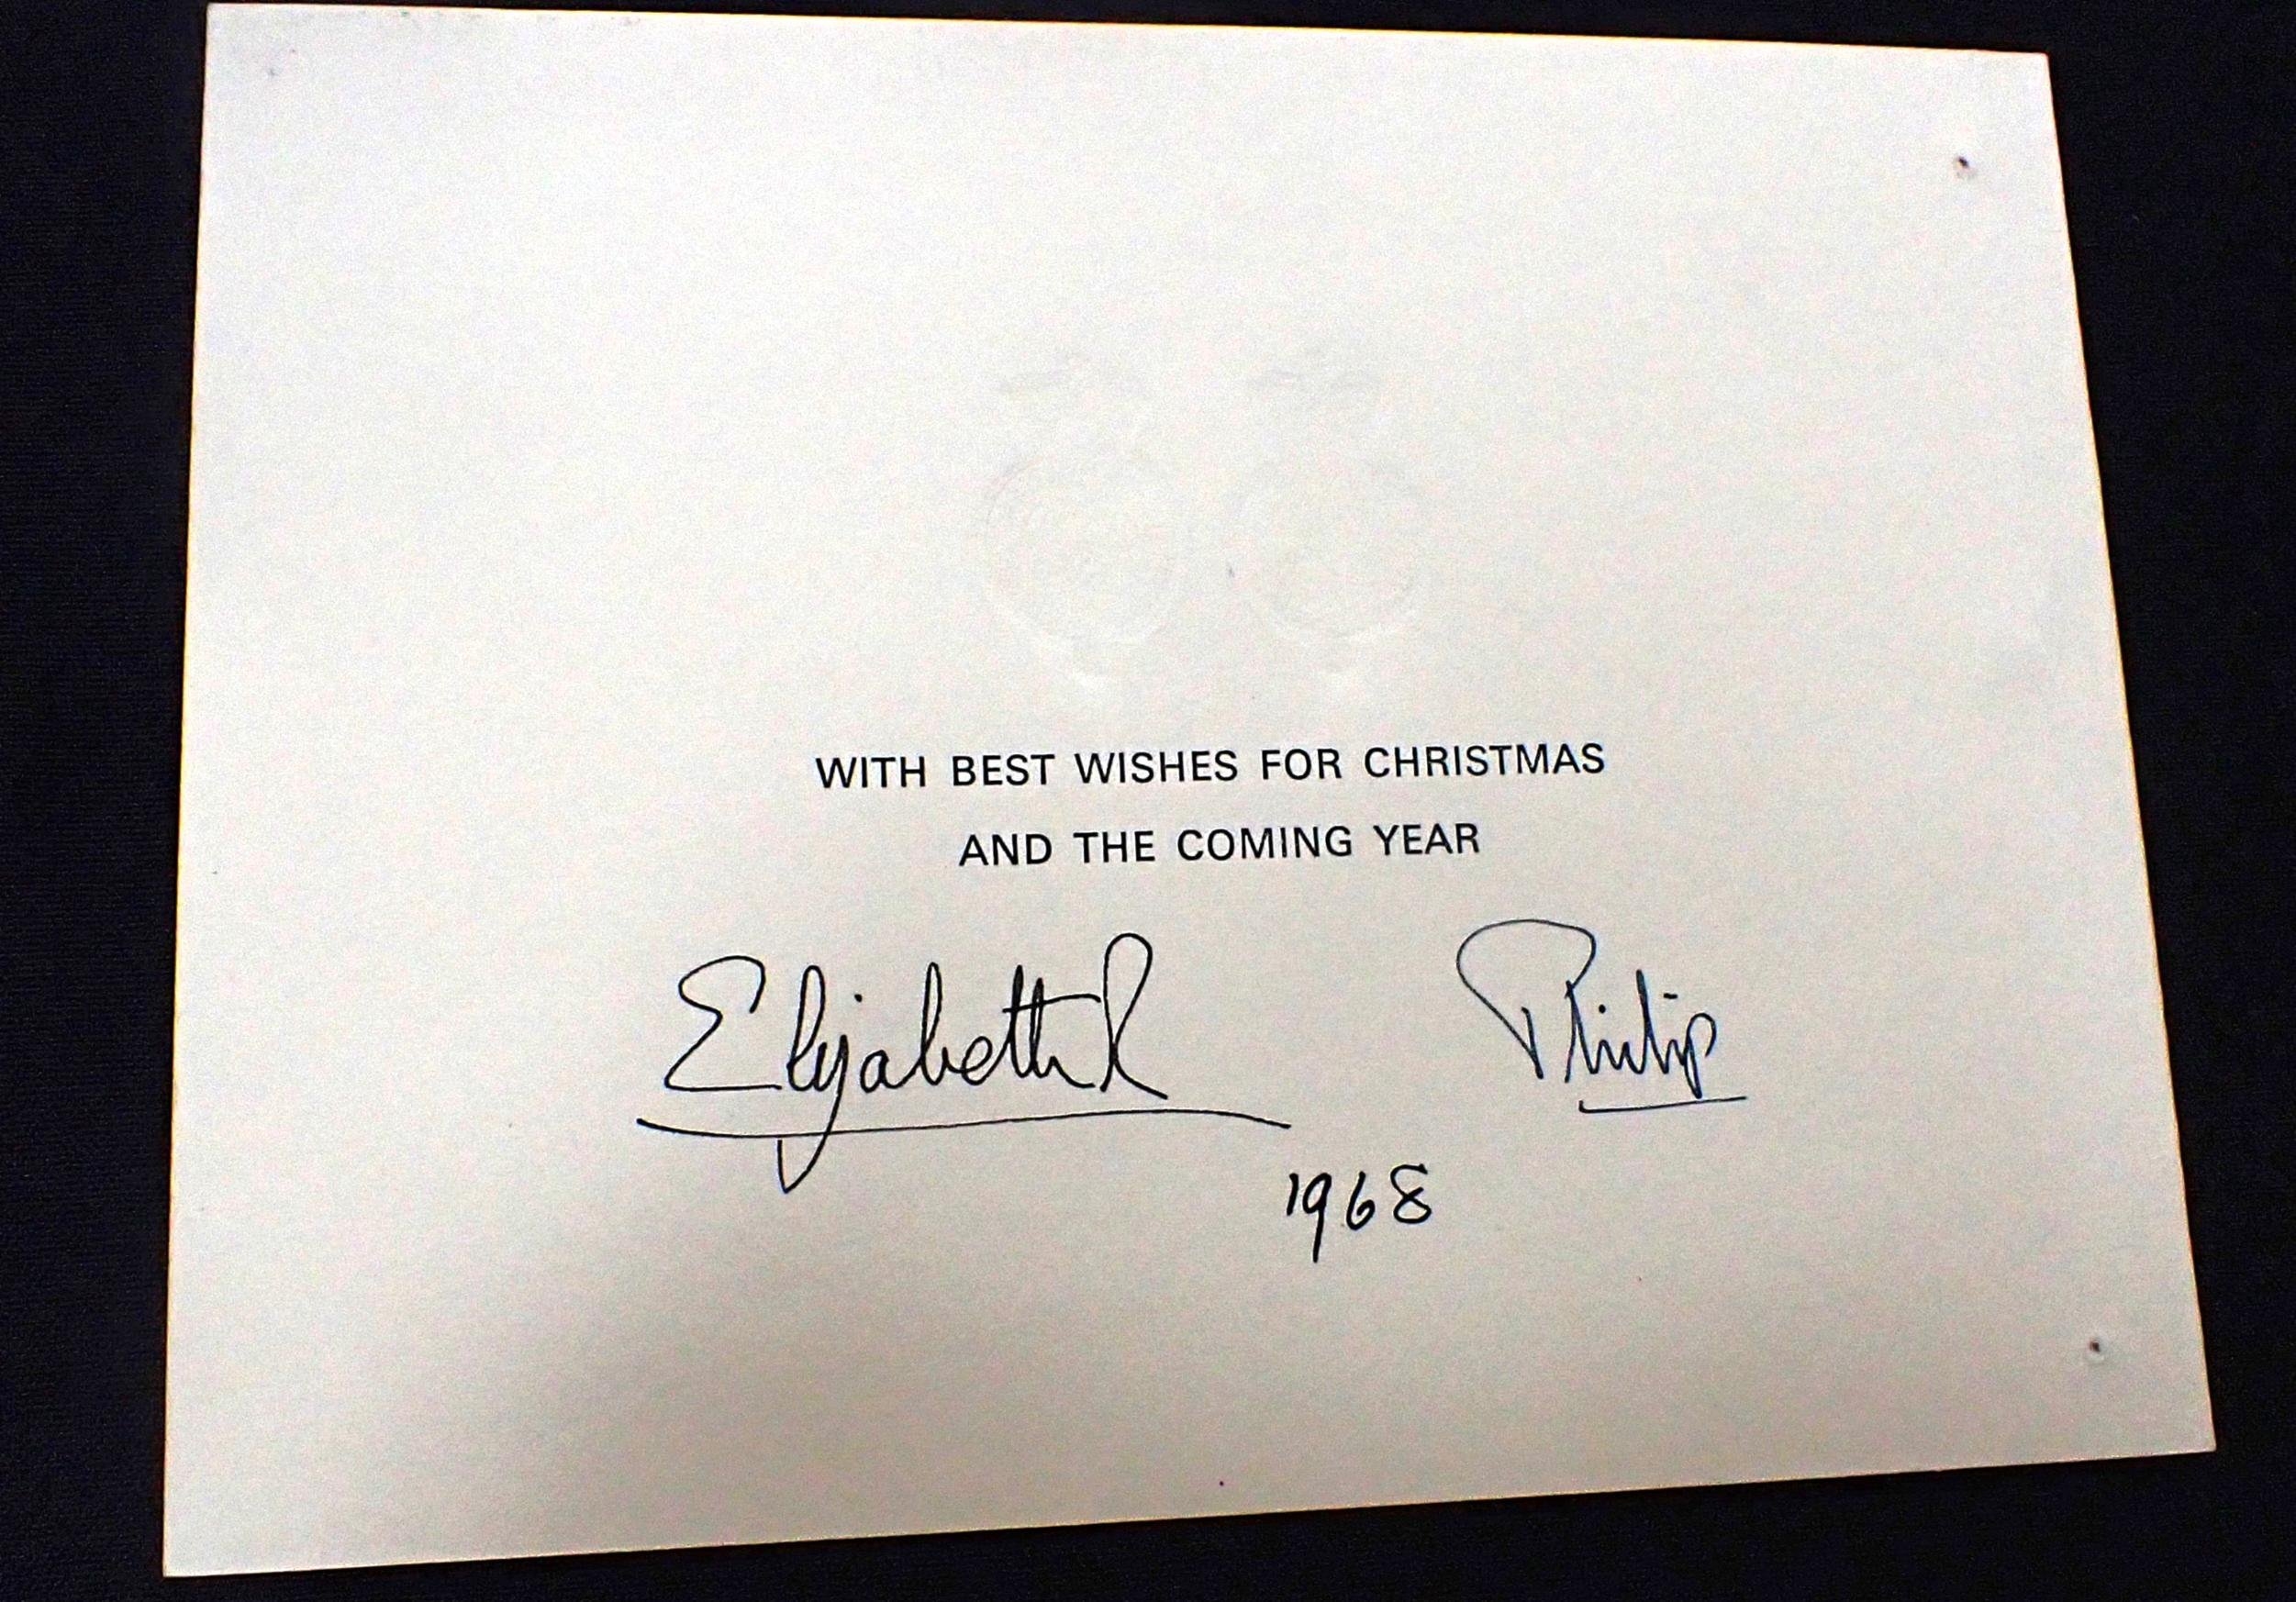 WITH BEST WISHES FOR CHRISTMAS
AND THE COMING YEAR
Elizabeth R Philip
1968